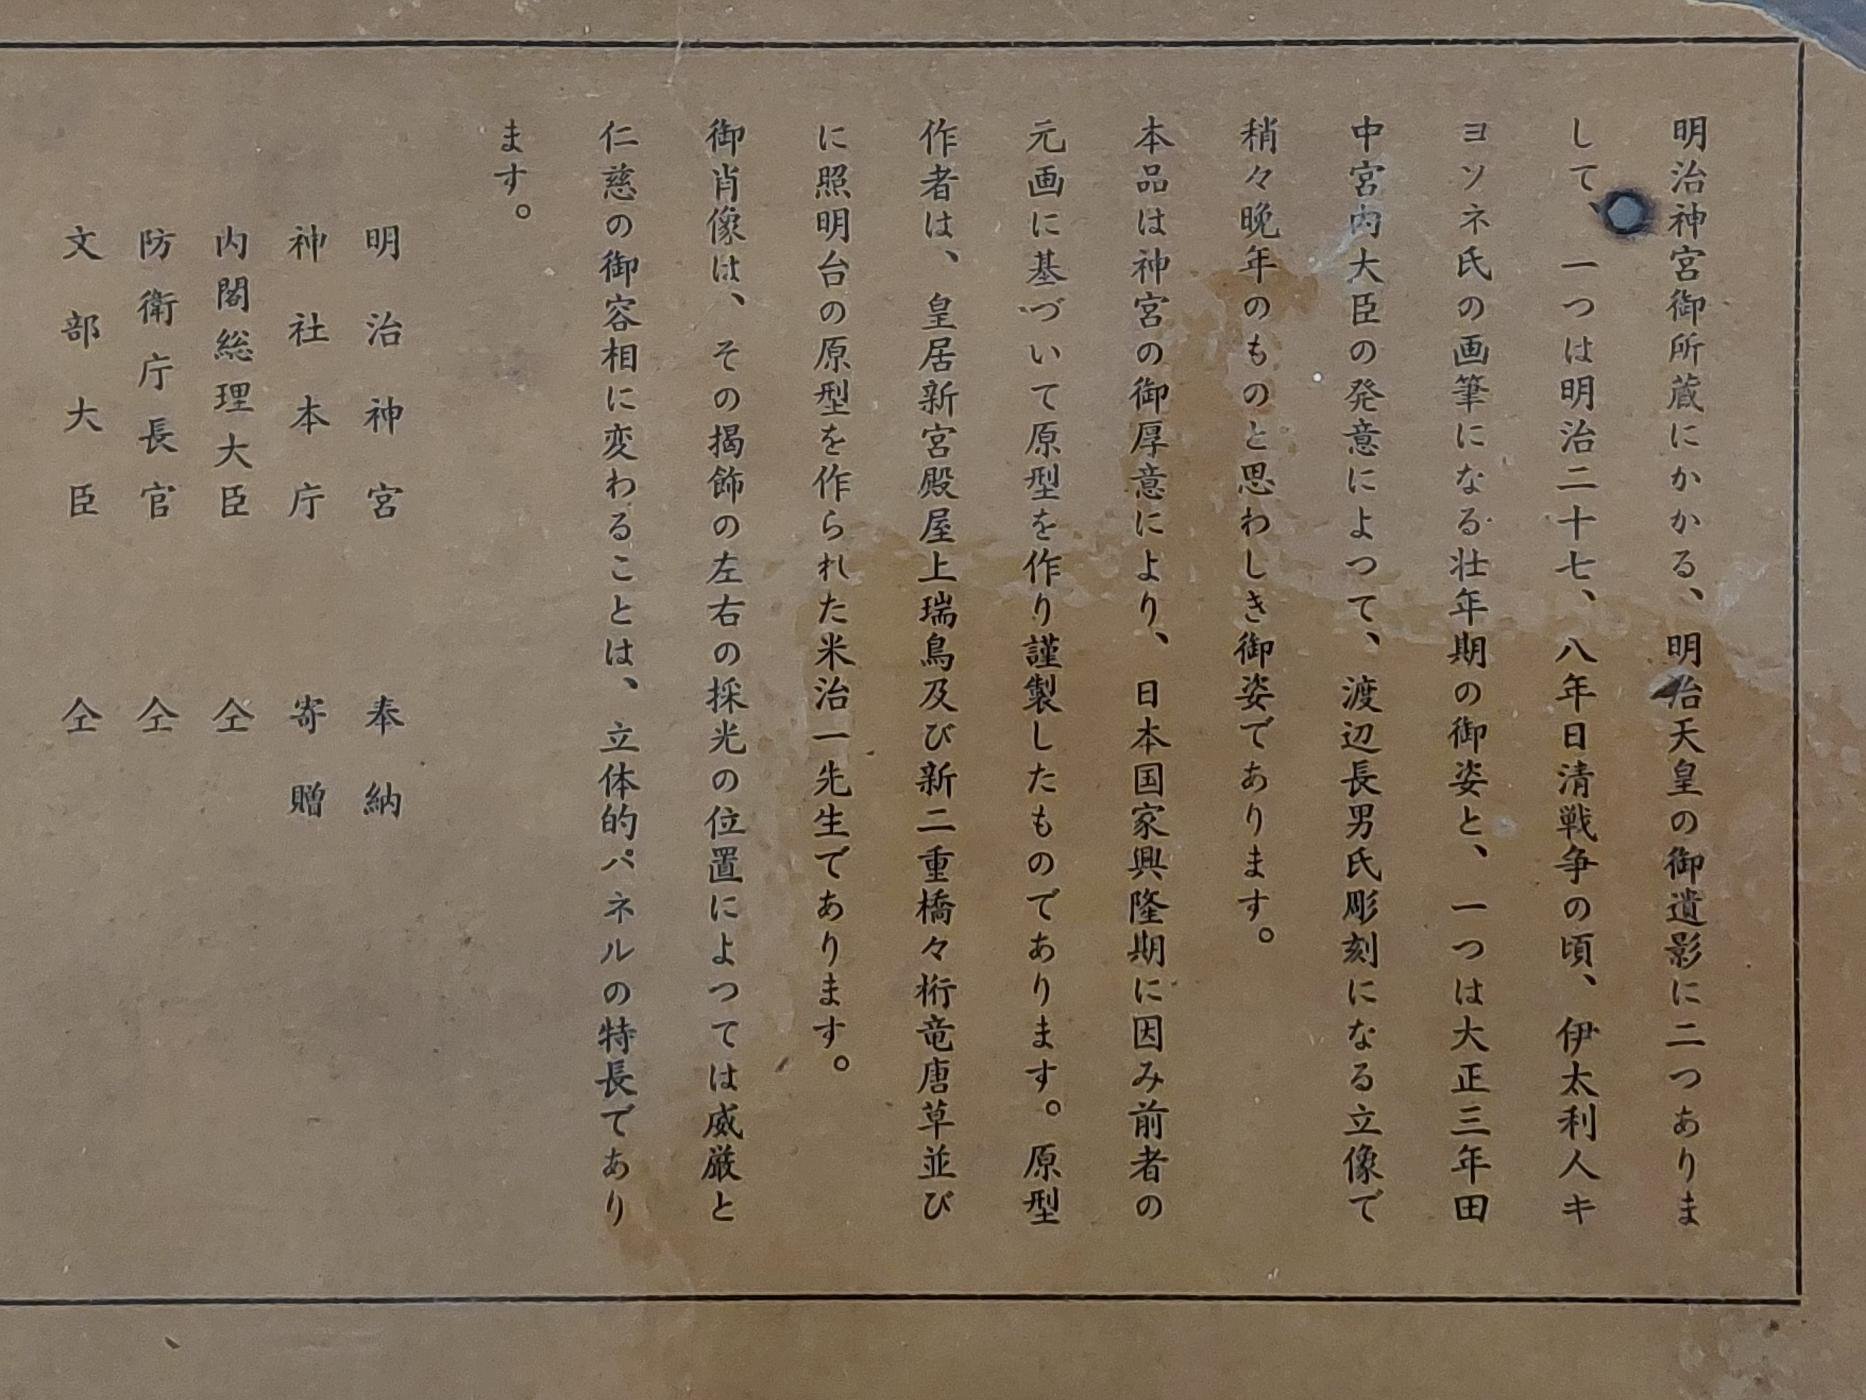 明治神宮御所蔵にかかる、明治天皇の御遺影に二つありま
して、一つは明治二十七、八年日清戦争の頃、伊太利人キ
ヨソネ氏の画筆になる壮年期の御姿と、一つは大正三年田
中宮内大臣の発意によつて、渡辺長男氏彫刻になる立像で
稍々晩年のものと思わしき御姿であります。
本品は神宮の御厚意により、日本国家興隆期に因み前者の
元画に基づいて原型を作り謹製したものであります。原型
作者は、皇居新宮殿屋上瑞鳥及び新二重橋々桁竜唐草並び
に照明台の原型を作られた米治一先生であります。
御肖像は、その掲飾の左右の採光の位置によつては威厳と
仁慈の御容相に変わることは、立体的パネルの特長であり
ます。
明治神宮 奉納
神社本庁 寄贈
内閣総理大臣 仝
防衛庁長官 仝
文部大臣 仝